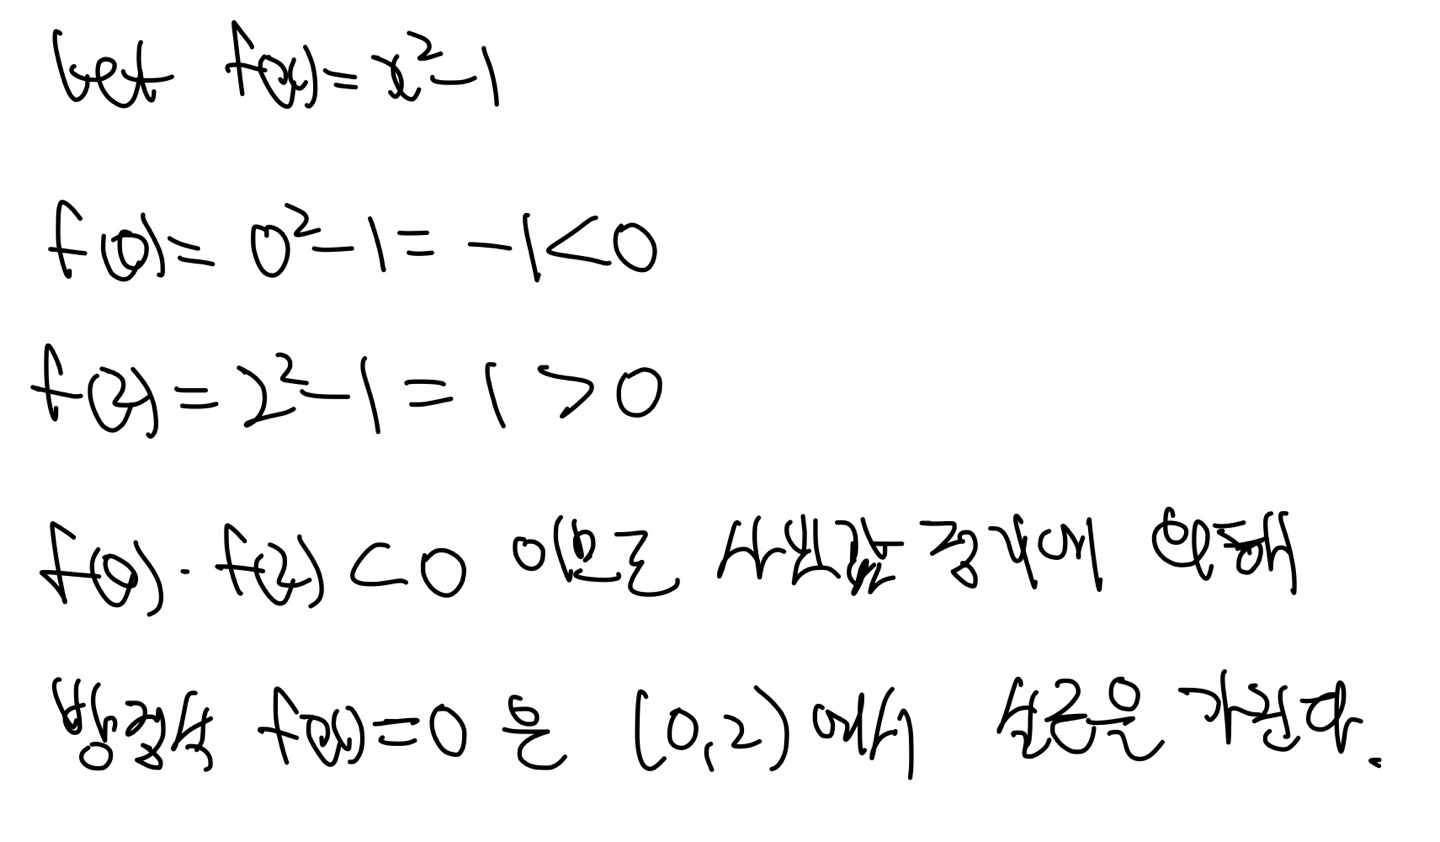 let f(x)=x²-1
f(0)= 0²-1= -1<0
f(2)= 2²-1= 1 >0
f(0)·f(2)<0 이므로 사잇값 정리에 의해
방정식 f(x)=0 은 (0,2)에서 실근을 가진다.